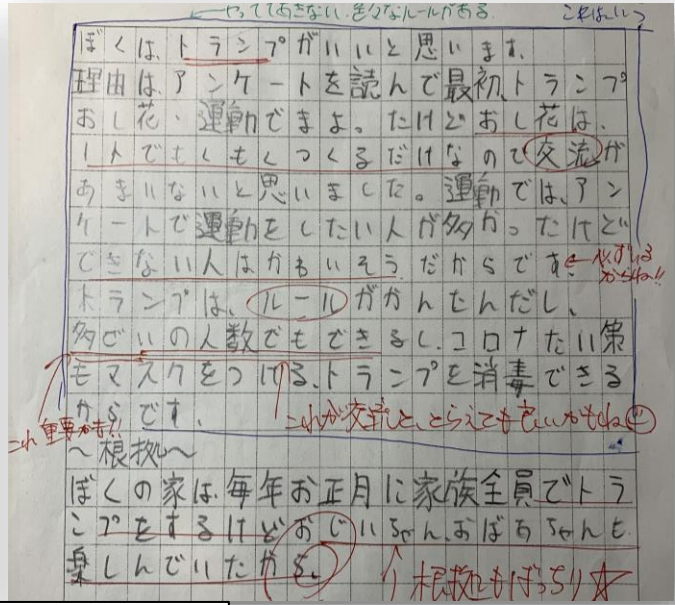 やっててあきない 色々なルールがある
これはいつ
ぼくは、トランプがいいと思います。
理由は、アンケートを読んで最初、トランプ
おし花・運動でまよ。たけどおし花は、
1人でもくもくつくるだけなので交流が
あまいないと思いました。運動では、アン
ケートで運動をしたい人が多かったけど
できない人はかわいそうだからです。
トランプは、ルールがかんたんだし、
多ぜいの人数でもできるし、コロナたい策
もマスクをつける、トランプを消毒できる
からです。
これ重要かも!!
これが交流と、とらえても良いかもね
〜根拠〜
ぼくの家は、毎年お正月に家族全員でトラ
ンプをするけどおじいちゃん、おばあちゃんも
楽しんでいたから。
根拠もばっちり☆